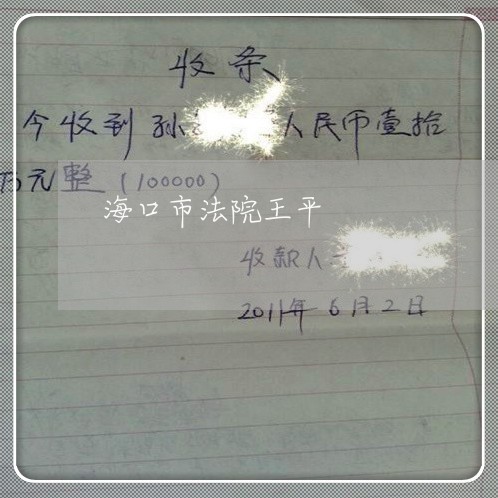 收条
今收到孙人民币壹拾
万元整(100000)
海口市法院王平
收款人
2011年6月2日